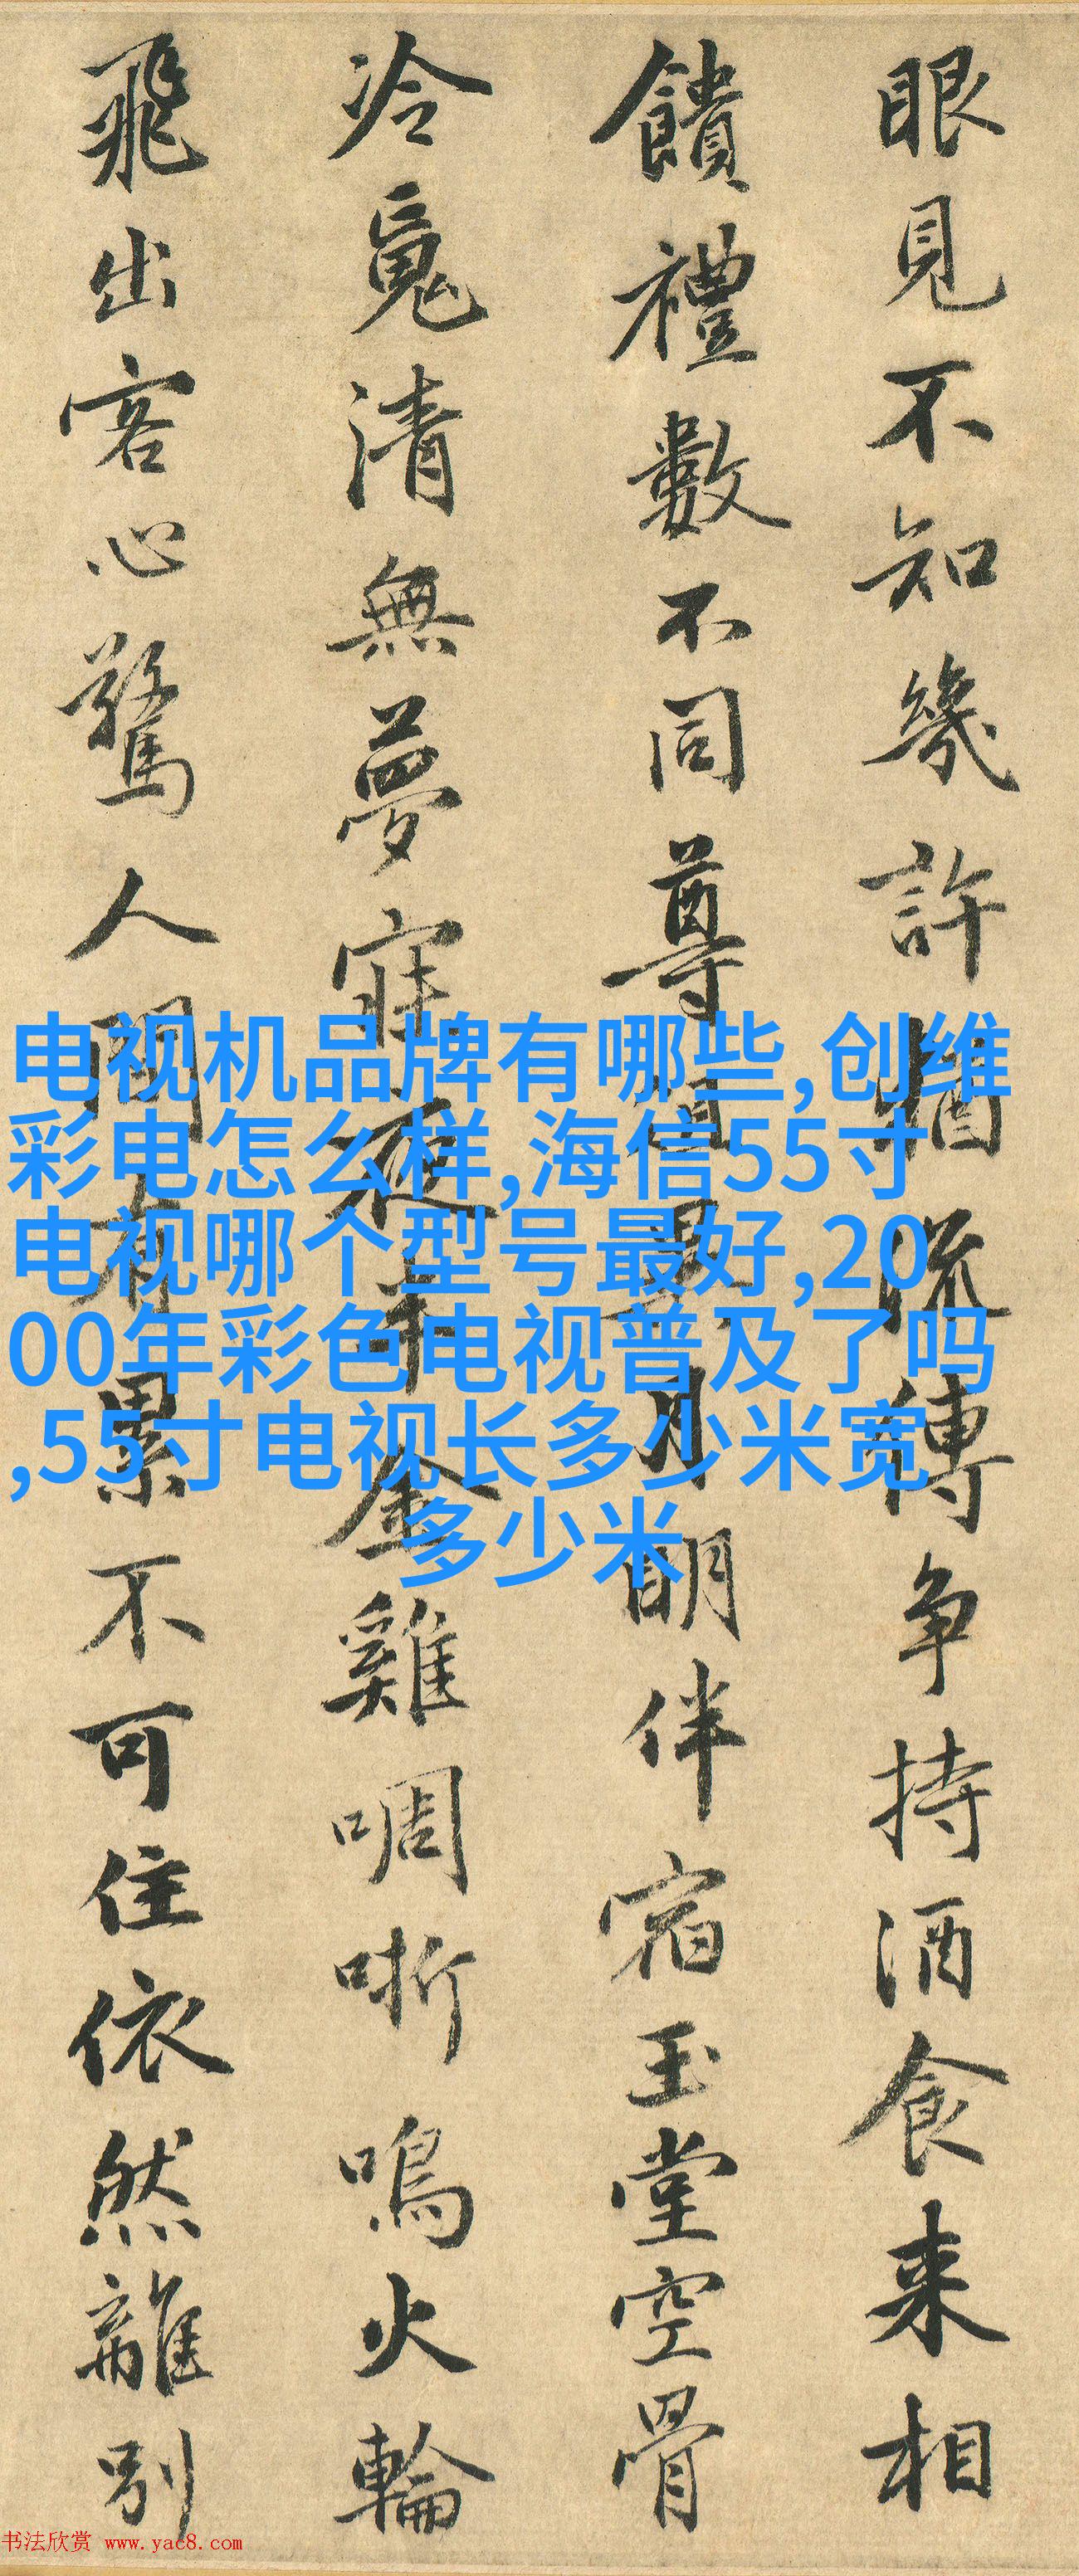 眼見不知幾許猶流傳争持酒食来相
饋禮數不同尊俎異月明伴宿玉堂空骨
冷魂清無夢寐夜半金雞啁哳鳴火輪
飛出客心驚人間有累不可住依然離別
电视机品牌有哪些,创维
彩电怎么样,海信55寸
电视哪个型号最好,20
00年彩色电视普及了吗
,55寸电视长多少米宽
多少米
书法欣赏 www.yac8.com